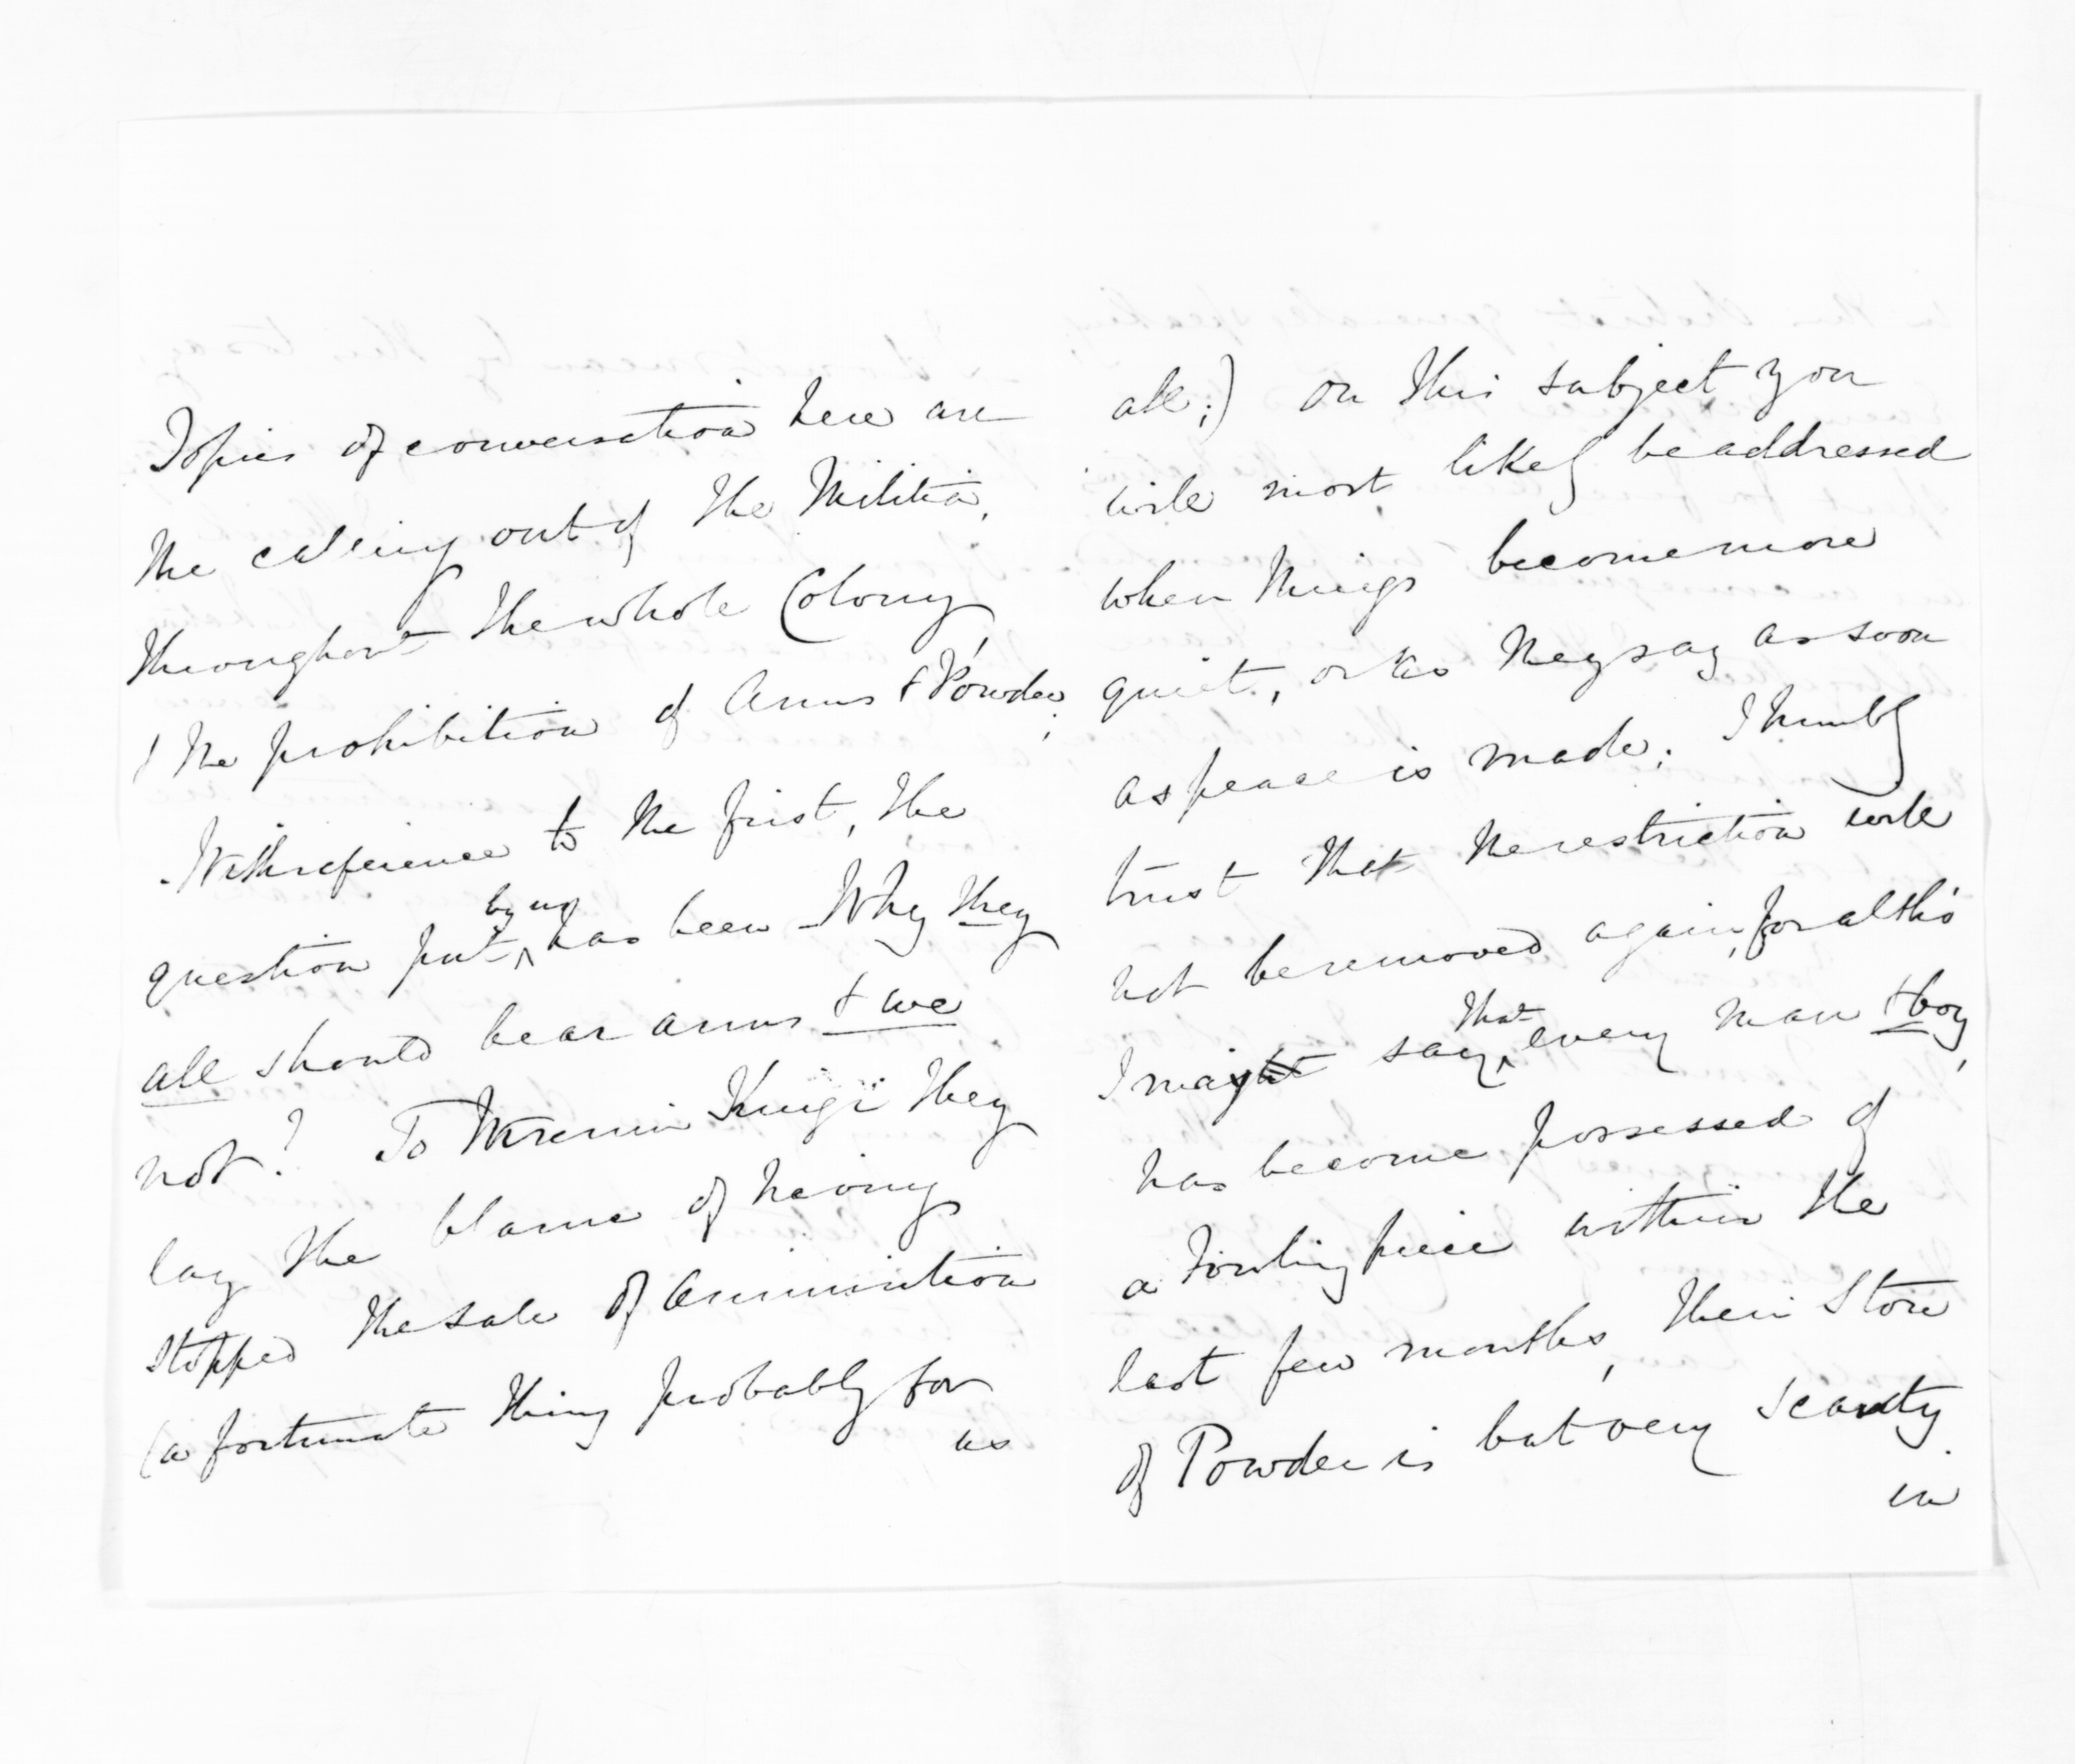 Topics of conversation here are
the calling out of the Militia,
throughout the whole Colony
& the prohibition of Arms & Powder;
With reference to the first, the
question put by us has been - Why they
all should bear arms & we
not? To Wiremu Kingi they
lay the blame of having
stopped the sale of Ammunition
(a fortunate thing probably for
as
all;) On this subject you
will most likely be addressed
when things become more
quiet, or as they say as soon
as peace is made; I humbly
trust that the restriction will
not be removed again, for altho'
I may say that every man & boy,
has become possessed of
a Fowling piece within the
last few months, their Store
of Powder is but very scanty
in